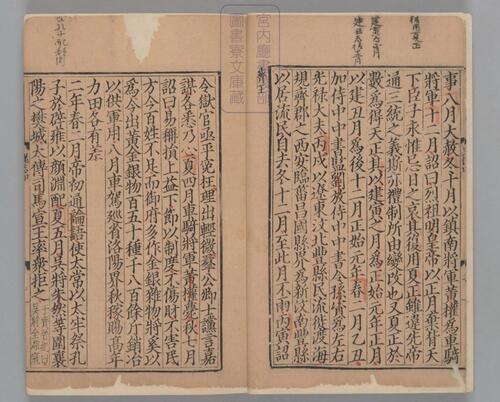 宮内廳書陵部
圖書寮文庫藏
事八月大赦冬十月以鎮南將軍黃權為車騎
將軍十二月詔曰烈祖明皇帝以正月棄背天
下臣子永惟忌日之哀其復用夏正雖違先帝
通三統之義斯亦禮制所由變改也又夏正於
數為得天正其以建寅之月為正始元年正月
以建丑月為後十二月正始元年春二月乙丑
加侍中中書監劉放侍中中書令孫資為左右
光祿大夫丙戌以遼東汶北豐縣民流徙渡海
規齊郡之西安臨菑昌國縣界為新汶南豐縣
以居流民自去冬十二月至此月不雨丙寅詔
令獄官亟平冤枉理出輕微羣公卿士讜言嘉
謀各悉乃心夏四月車騎將軍黃權薨秋七月
詔曰易稱損上益下節以制度不傷財不害民
方今百姓不足而御府多作金銀雜物將奚以
為今出黃金銀物百五十種千八百餘斤銷冶
以供軍用八月車駕巡省洛陽界秋稼賜高年
力田各有差
二年春二月帝初通論語使太常以太牢祭孔
子於辟雍以顏淵配夏五月吳將朱然等圍襄
陽之樊城太傅司馬宣王率衆拒之